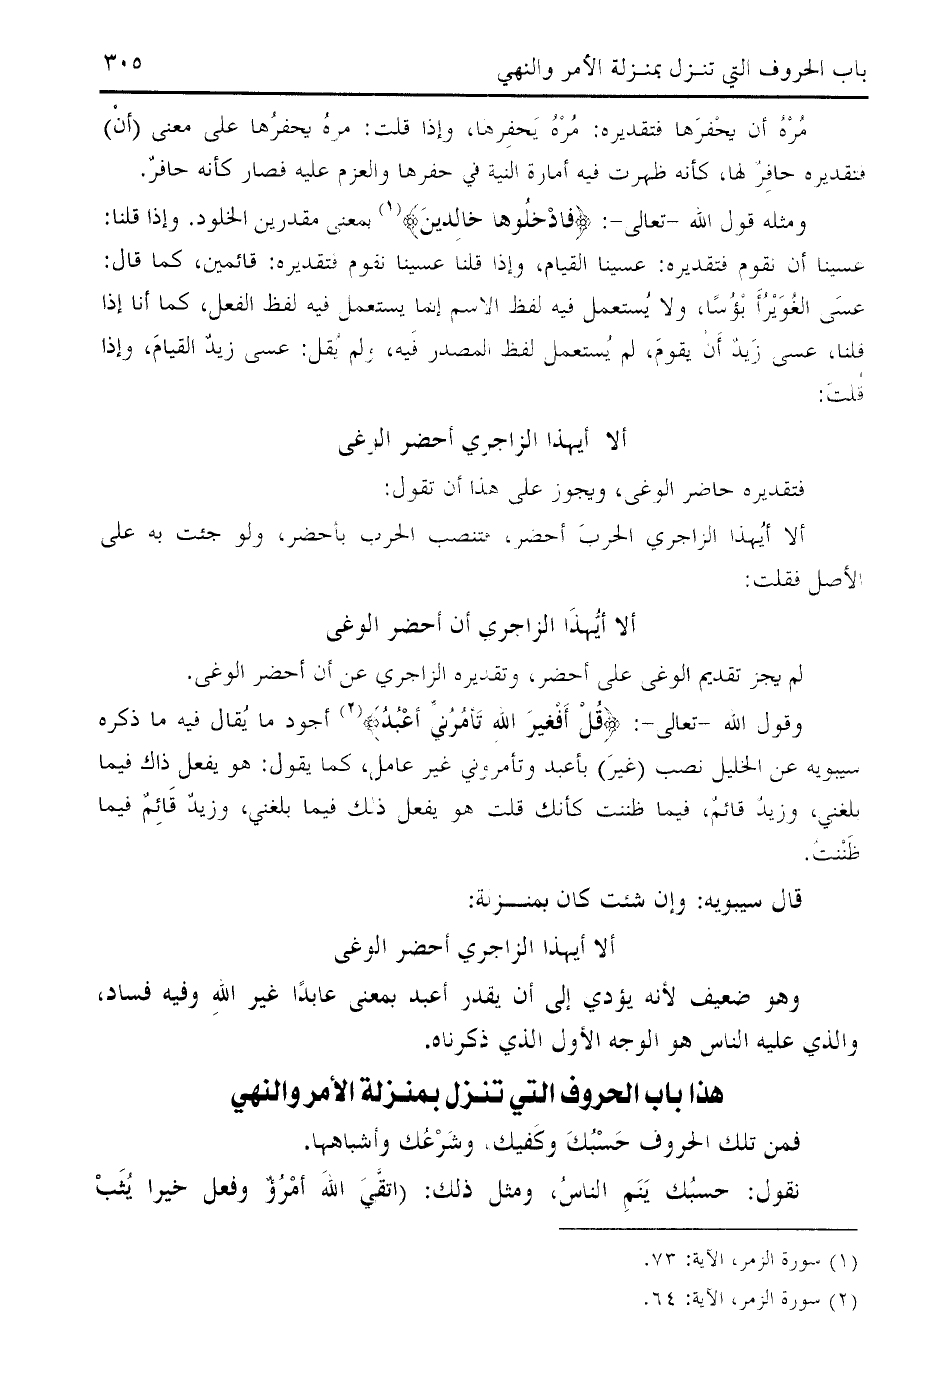 باب الحروف التي تنـزل بمنـزلة الأمر والنهي ٣٠٥
مُرْهُ أن يحْفرَها فتقديره: مُرْهُ يَحفِرها، وإذا قلت: مرهُ يحفرُها على معنى (أنْ)
فتقديره حافِرٌ لها، كأنه ظهرت فيه أمارة النية في حفرها والعزم عليه فصار كأنه حافرٌ.
ومثله قول الله –تعالى–: ﴿فَادْخلُوها خالدينَ﴾(١) بمعنى مقدرين الخلود. وإذا قلنا:
عسينا أن نقوم فتقديره: عسينا القيام، وإذا قلنا عسينا نقوم فتقديره: قائمين، كما قال:
عسَى الغُوَيْرُ أَبْؤُسًا، ولا يُستعمل فيه لفظ الاسم إنما يستعمل فيه لفظ الفعل، كما أنا إذا
قلنا، عسى زَيدٌ أَن يقومَ، لم يُستعمل لفظ المصدر فيه، ولم يُقل: عسى زيدٌ القيامَ، وإذا
قُلتَ:
ألا أيهذا الزاجري أحضر الوغى
فتقديره حاضر الوغى، ويجوز على هذا أن تقول:
ألا أيُهذا الزاجري الحربَ أحضر، فتنصب الحرب بأحضر، ولو جئت به على
الأصل فقلت:
ألا أيُّهذَا الزاجري أن أحضر الوغى
لم يجز تقديم الوغى على أحضر، وتقديره الزاجري عن أن أحضر الوغى.
وقول الله –تعالى–: ﴿قُلْ أَفْغيرَ الله تَأمُرُنيِّ أعْبُدُ﴾(٢) أجود ما يُقال فيه ما ذكره
سيبويه عن الخليل نصب (غيرَ) بأعبد وتأمروني غير عامل، كما يقول: هو يفعل ذاك فيما
بلغني، وزيدٌ قائمٌ، فيما ظننت كأنك قلت هو يفعل ذلك فيما بلغني، وزيدٌ قَائِمٌ فيما
ظَنْنتُ.
قال سيبويه: وإن شئت كان بمنـــزلة:
ألا أيهذا الزاجري أحضر الوغى
وهو ضعيف لأنه يؤدي إلى أن يقدر أعبد بمعنى عابدًا غير اللهِ وفيه فساد،
والذي عليه الناس هو الوجه الأول الذي ذكرناه.
هذا باب الحروف التي تنـزل بمنـزلة الأمر والنهي
فمن تلك الحروف حَسْبُكَ وكَفيك، وشَرْعُك وأشباهها.
نقول: حسبُك يَنَمِ الناسُ، ومثل ذلك: (اتقَّىَ اللهَ أمْرُؤٌ وفعل خيرا يُثَبْ
(١) سورة الزمر، الآية: ٧٣.
(٢) سورة الزمر، الآية: ٦٤.